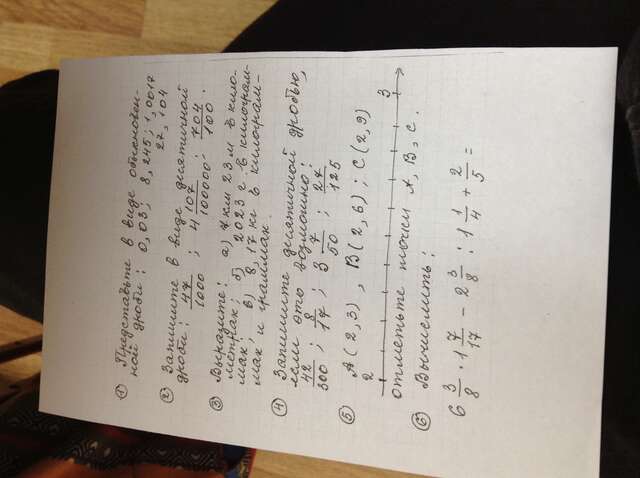 ① Представьте в виде обыкновен-
ной дроби: 0,03; 8,245; 1,0017
27,104
② Запишите в виде десятичной
дроби: 47/1000; 4 107/100000; 704/100.
③ Выразите: а) 7 км 23 м в кило-
метрах; б) 2023 г в килограм-
мах; в) 8,17 кг в килограм-
мах и граммах.
④ Запишите десятичной дробью,
если это возможно:
42/300; 8/17; 3 7/50; 27/125
⑤ А(2,3), В(2,6); С(2,9)
2 3
отметьте точки А, В, С.
⑥ Вычислить:
6 3/8 · 1 7/17 − 2 3/8 : 1 1/4 + 2/5 =